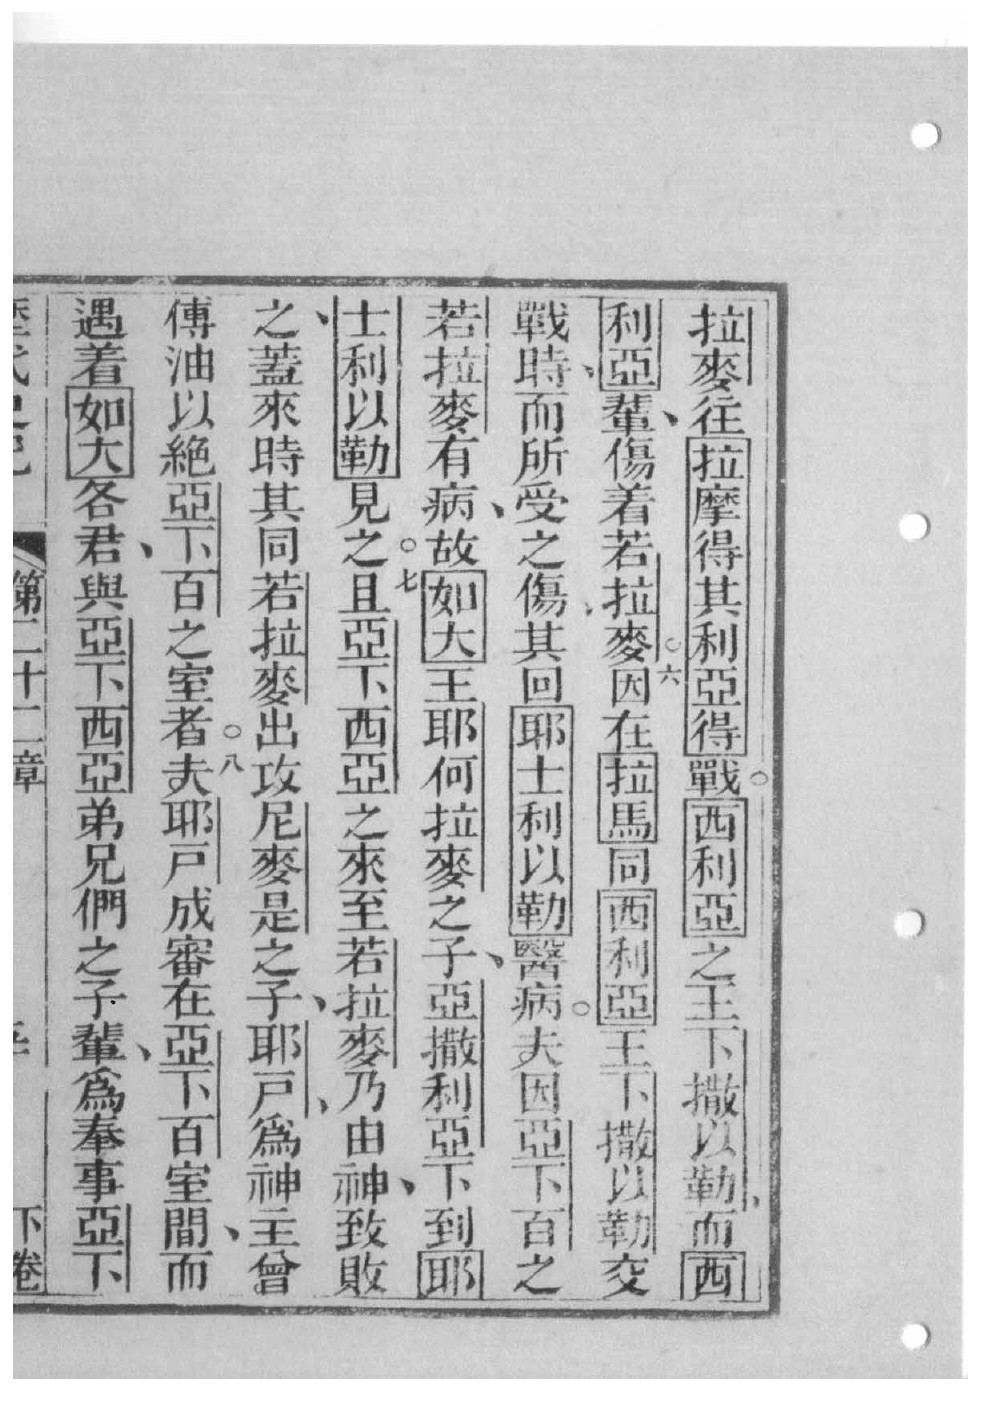 拉麥往拉摩得其利亞得戰○西利亞之王下撒以勒、而西
利亞輩、傷着若拉麥○六因在拉馬同西利亞王下撒以勒交
戰時、而所受之傷、其回耶士利以勒醫病○夫因亞下百之
若拉麥有病、故如大王耶何拉麥之子、亞撒利亞下到耶
士利以勒見之○七且亞下西亞之來至若拉麥乃由神、致敗
之、蓋來時其同若拉麥出攻尼麥是之子、耶戶、爲神主曾
傅油以絕亞下百之室者○八夫耶戶成審在亞下百室間、而
遇着如大各君、與亞下西亞弟兄們之子輩、爲奉事亞下
第二十二章
下卷